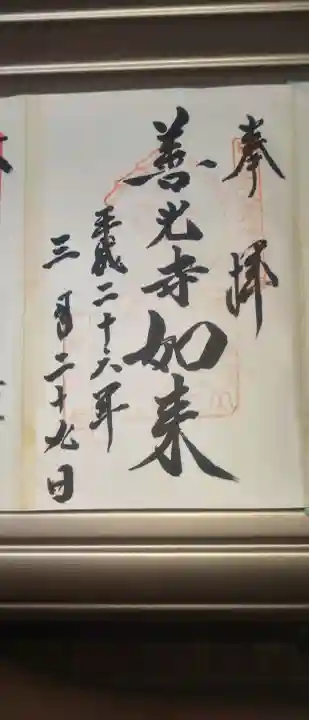 奉拝
善光寺如来
平成二十六年
三月二十九日